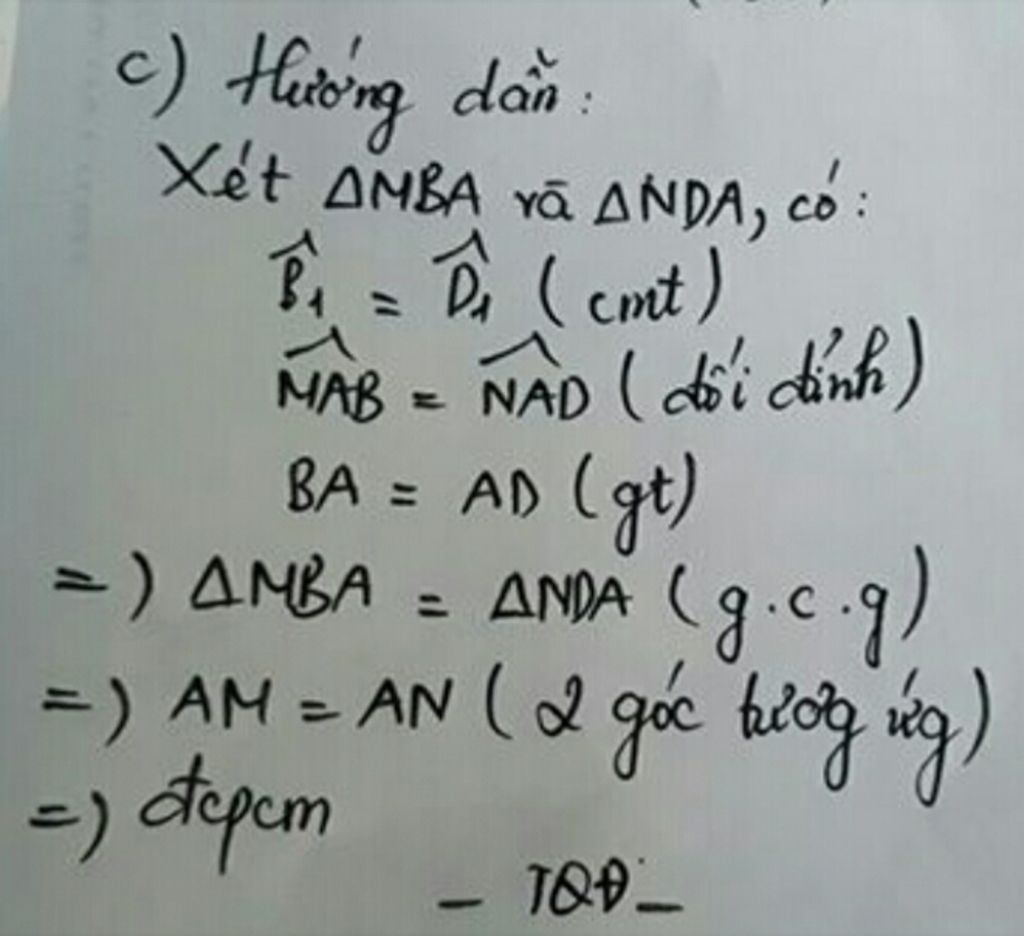 c) Hướng dẫn:
Xét ΔMBA và ΔNDA, có:
B̂₁ = D̂₁ (cmt)
M̂AB = N̂AD (đối đỉnh)
BA = AD (gt)
=) ΔMBA = ΔNDA (g.c.g)
=) AM = AN (2 góc tương ứg)
=) đcpcm
- TQĐ -